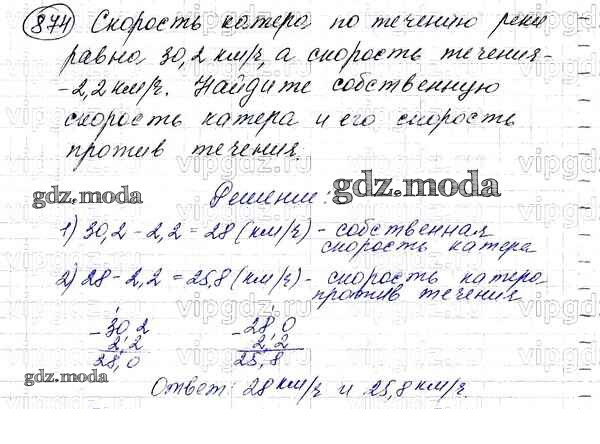 874 Скорость катера по течению реки
равна 30,2 км/ч, а скорость течения -
- 2,2 км/ч. Найдите собственную
скорость катера и его скорость
против течения.
gdz.moda Решение: gdz.moda
1) 30,2 - 2,2 = 28 (км/ч) - собственная
скорость катера
2) 28 - 2,2 = 25,8 (км/ч) - скорость катера
против течения
- 30,2 - 28,0
2,2 2,2
28,0 25,8
gdz.moda
Ответ: 28 км/ч и 25,8 км/ч.